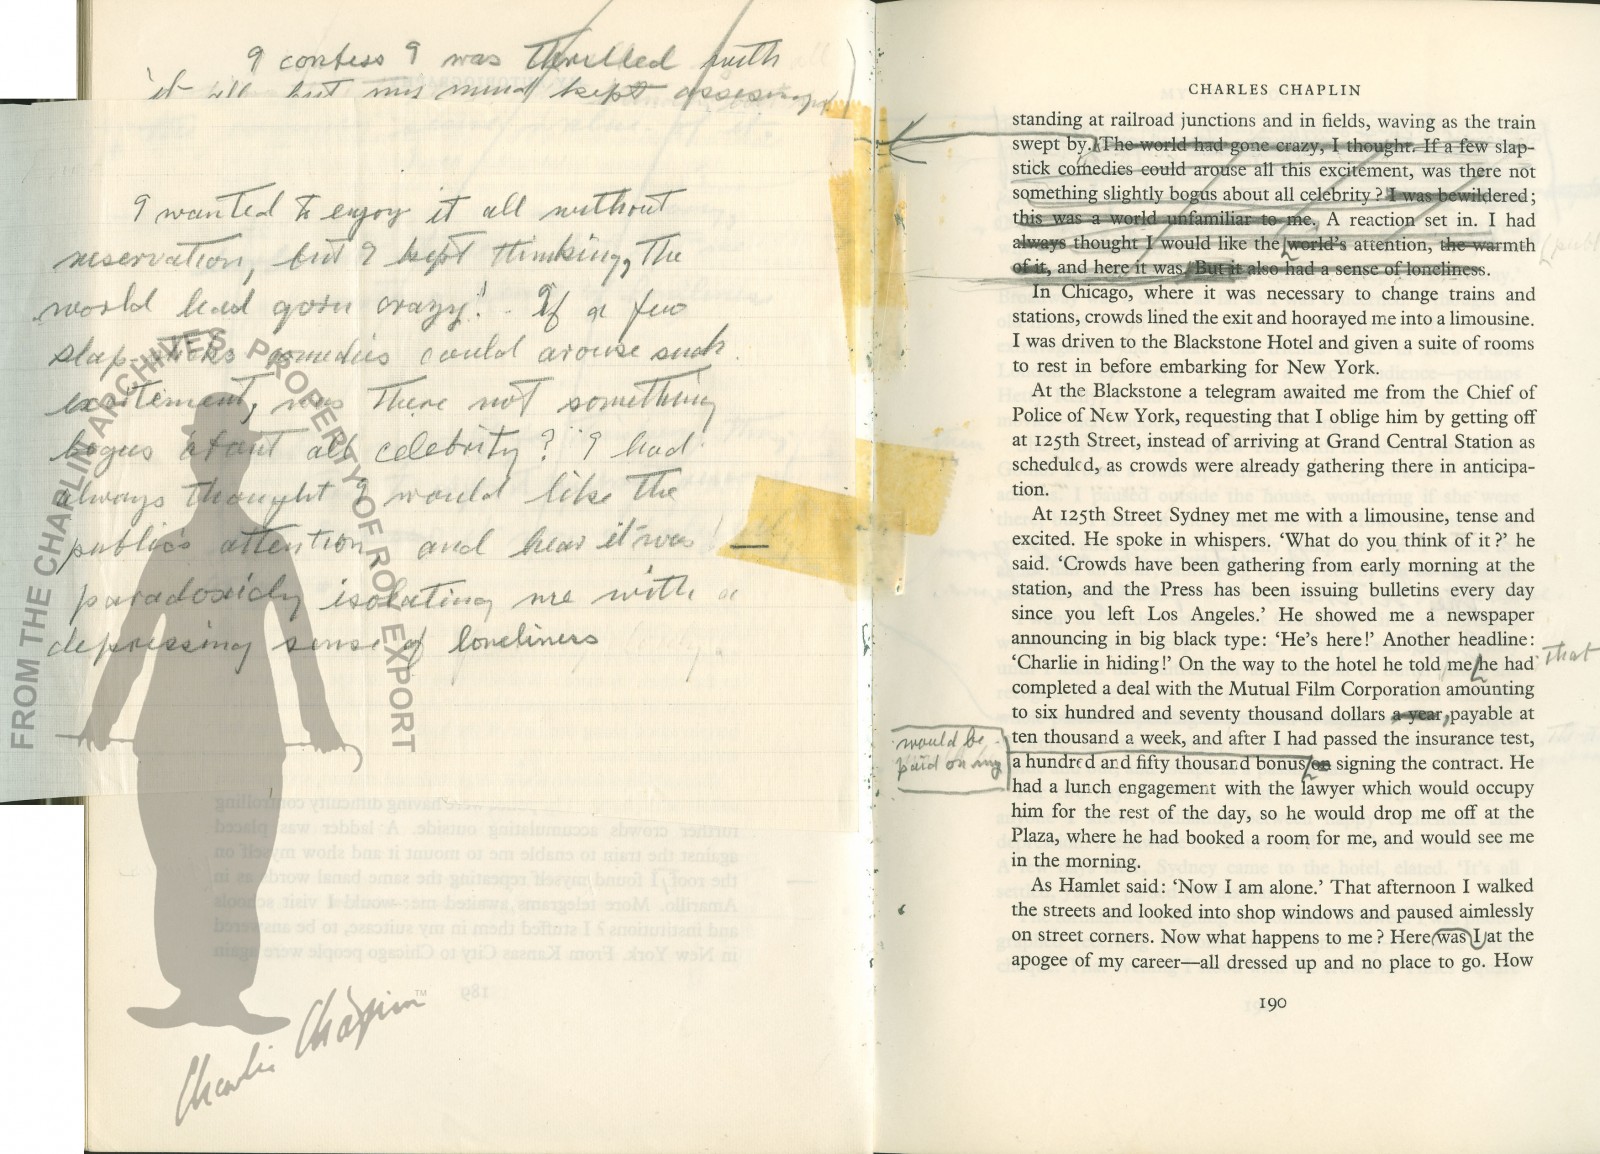 I confess I was thrilled with
it all but my mind kept
I wanted to enjoy it all without
reservation, but I kept thinking, the
world had gorn crazy! If a few
slap-sticks comedies could arouse such
excitement, was there not something
bogus about all celebrity? I had
always thought I would like the
public's attention and hear it was! —
paradoxicly isolating me with a
depressing sense of loneliness
FROM THE CHAPLIN ARCHIVES. PROPERTY OF ROY EXPORT
Charlie Chaplin™
further crowds accumulating outside. A ladder was placed
against the train to enable me to mount it and show myself on
the roof, I found myself repeating the same banal words as in
Amarillo. More telegrams awaited me: would I visit schools
and institutions? I stuffed them in my suitcase, to be answered
in New York. From Kansas City to Chicago people were again
189
CHARLES CHAPLIN
standing at railroad junctions and in fields, waving as the train
swept by. The world had gone crazy, I thought. If a few slap-
stick comedies could arouse all this excitement, was there not
something slightly bogus about all celebrity? I was bewildered;
this was a world unfamiliar to me. A reaction set in. I had
always thought I would like the world's attention, the warmth
of it, and here it was. But it also had a sense of loneliness.
In Chicago, where it was necessary to change trains and
stations, crowds lined the exit and hoorayed me into a limousine.
I was driven to the Blackstone Hotel and given a suite of rooms
to rest in before embarking for New York.
At the Blackstone a telegram awaited me from the Chief of
Police of New York, requesting that I oblige him by getting off
at 125th Street, instead of arriving at Grand Central Station as
scheduled, as crowds were already gathering there in anticipa-
tion.
At 125th Street Sydney met me with a limousine, tense and
excited. He spoke in whispers. ‘What do you think of it?’ he
said. ‘Crowds have been gathering from early morning at the
station, and the Press has been issuing bulletins every day
since you left Los Angeles.’ He showed me a newspaper
announcing in big black type: ‘He's here!’ Another headline:
‘Charlie in hiding!’ On the way to the hotel he told me he had
that
completed a deal with the Mutual Film Corporation amounting
to six hundred and seventy thousand dollars a year, payable at
ten thousand a week, and after I had passed the insurance test,
would be
paid on my
a hundred and fifty thousand bonus on signing the contract. He
had a lunch engagement with the lawyer which would occupy
him for the rest of the day, so he would drop me off at the
Plaza, where he had booked a room for me, and would see me
in the morning.
As Hamlet said: ‘Now I am alone.’ That afternoon I walked
the streets and looked into shop windows and paused aimlessly
on street corners. Now what happens to me? Here was I at the
apogee of my career—all dressed up and no place to go. How
190